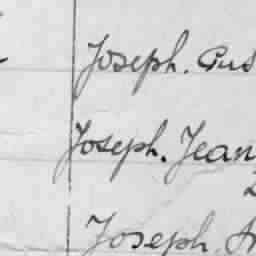 Joseph. Gus
Joseph. Jean
Joseph.